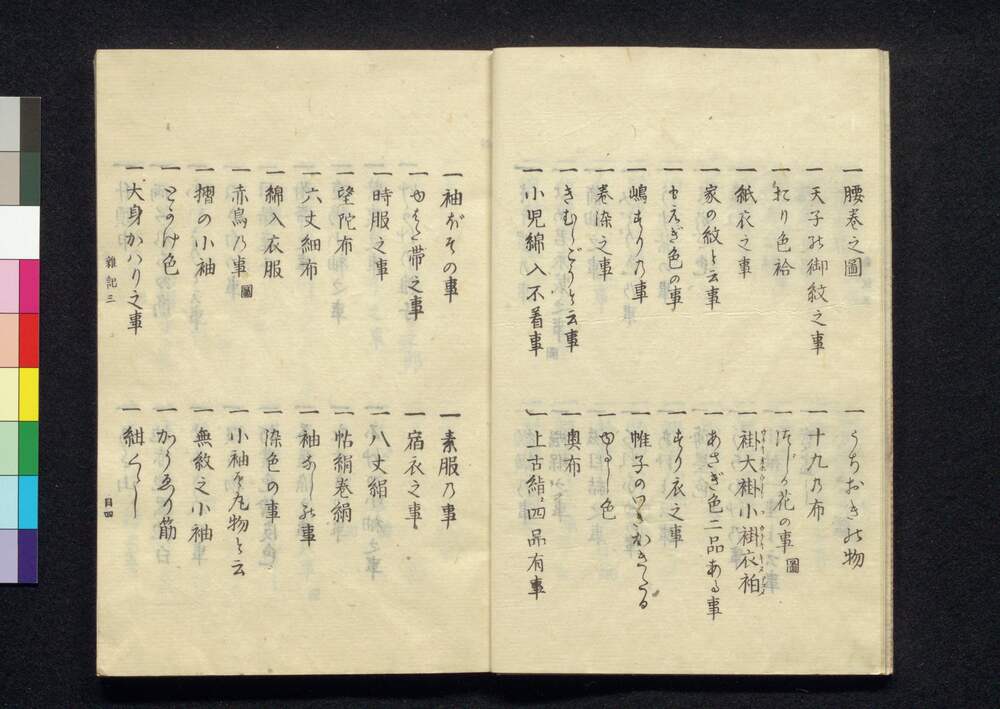 一 腰巻之圖
一 天子の御紋之事
一 打り色袷
一 紙衣之事
一 家の紋と云事
一 もえぎ色の事
一 嶋すりの事
一 巻染之事
一 きむらごうと云事
一 小児綿入不着事
一 うちおきの物
一 十九の布
一 つじが花の事 圖
一 褂大褂小褂衣袙
一 あさぎ色二品ある事
一 すり衣之事
一 帷子のわきかきたる
一 ゆるし色
一 奥布
一 上古絹四品有事
一 袖ぼその事
一 ゆはた帯之事
一 時服之事
一 望陀布
一 六丈細布
一 綿入衣服
一 赤鳥の事 圖
一 摺の小袖
一 とかけ色
一 大身かハり之事
一 素服の事
一 宿衣之事
一 八丈絹
一 帖絹巻絹
一 袖なしの事
一 染色の事
一 小袖を丸物と云
一 無紋之小袖
一 かうゑり筋
一 紺くゝし
雜記三
目四